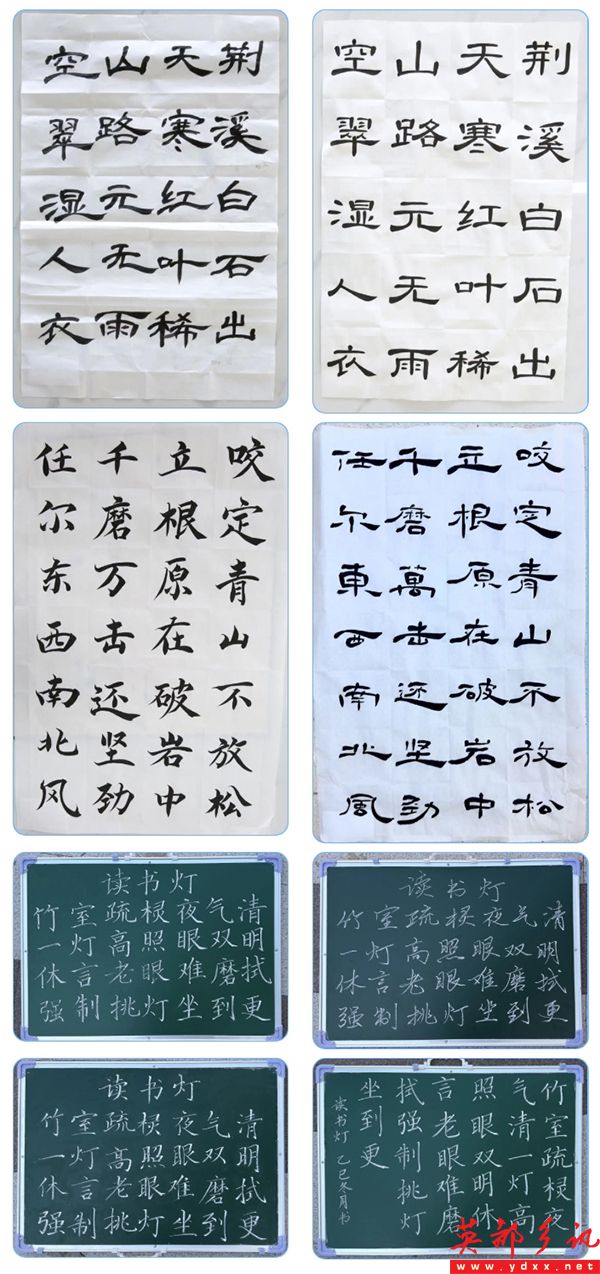 荆溪白石出
天寒红叶稀
山路元无雨
空翠湿人衣
荆溪白石出
天寒红叶稀
山路元无雨
空翠湿人衣
咬定青山不放松
立根原在破岩中
千磨万击还坚劲
任尔东西南北风
咬定青山不放松
立根原在破岩中
千磨萬击还坚劲
任尔東西南北風
读书灯
竹室疏棂夜气清
一灯高照眼双明
休言老眼难磨拭
强制挑灯坐到更
读书灯
竹室疏棂夜气清
一灯高照眼双明
休言老眼难磨拭
强制挑灯坐到更
读书灯
竹室疏棂夜气清
一灯高照眼双明
休言老眼难磨拭
强制挑灯坐到更
竹室疏棂夜
气清一灯高
照眼双明休
言老眼难磨
拭强制挑灯
坐到更
读书灯 乙巳冬月书
英都乡讯
www.ydxx.net